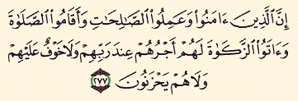 إِنَّ ٱلَّذِينَ ءَامَنُوا۟ وَعَمِلُوا۟ ٱلصَّـٰلِحَـٰتِ وَأَقَامُوا۟ ٱلصَّلَوٰةَ
وَءَاتَوُا۟ ٱلزَّكَوٰةَ لَهُمْ أَجْرُهُمْ عِندَ رَبِّهِمْ وَلَا خَوْفٌ عَلَيْهِمْ
وَلَا هُمْ يَحْزَنُونَ ٢٧٧